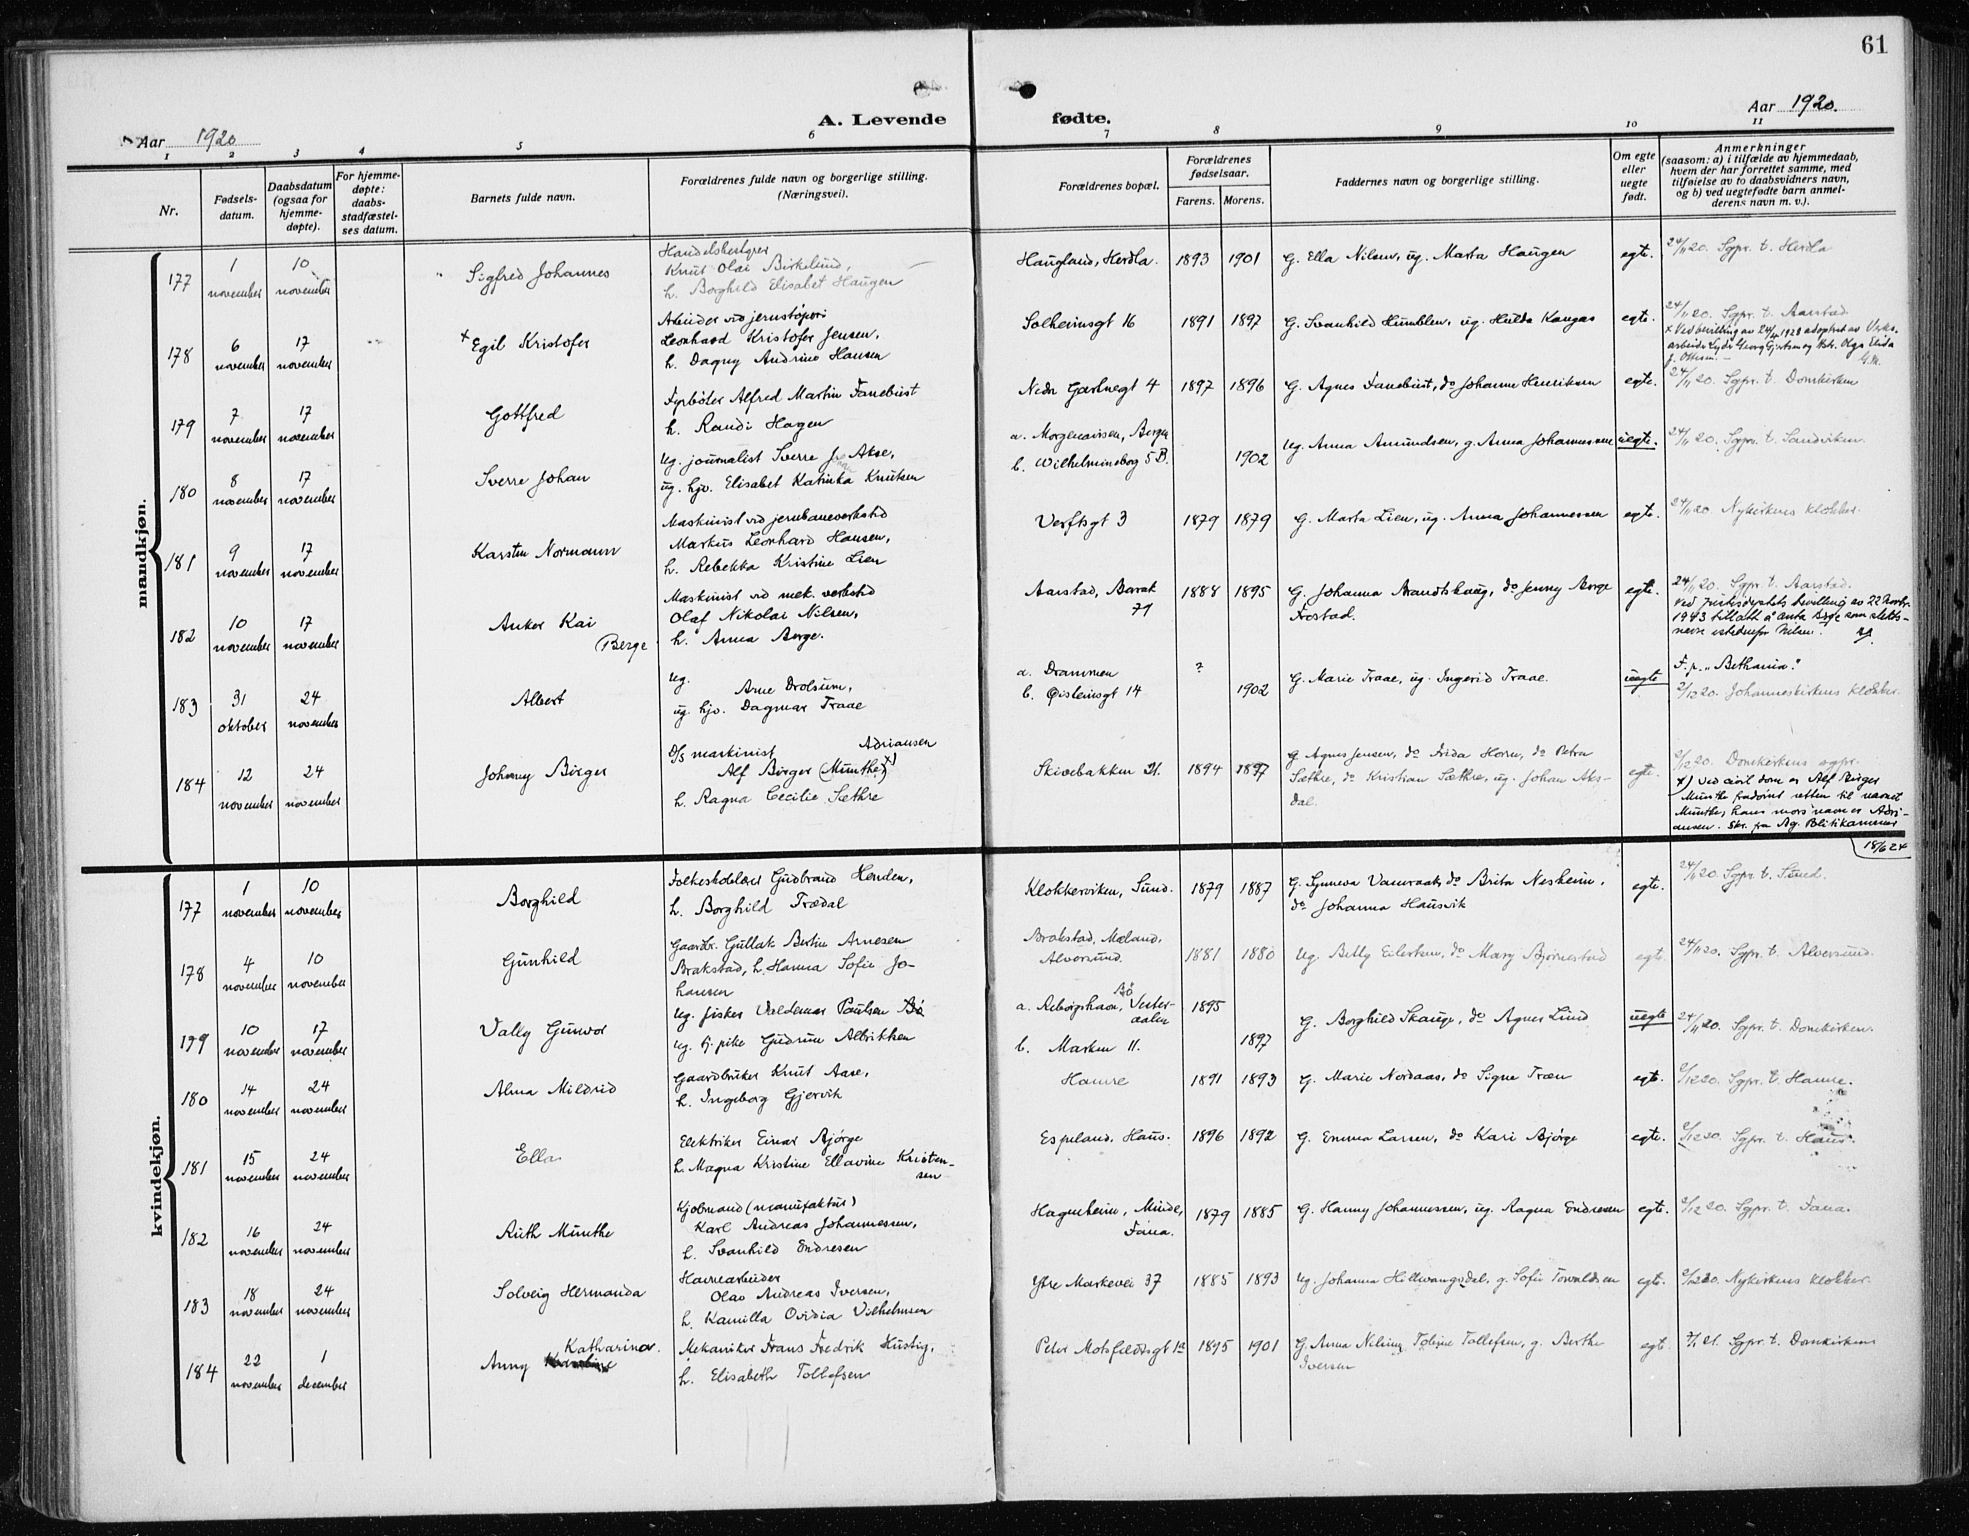 61
Aar 1920
A. Levende fødte.
Aar 1920.
1 2 3 4 5 6 7 8 9 10 11
Nr.
Fødsels-
datum.
Daabsdatum
(ogsaa for
hjemme-
døpte).
For hjemme-
døpte:
daabs-
stadfæstel-
ses datum.
Barnets fulde navn.
Forældrenes fulde navn og borgerlige stilling.
(Næringsvei).
Forældrenes bopæl.
Forældrenes
fødselsaar.
Farens. Morens.
Faddernes navn og borgerlige stilling.
Om egte
eller
uegte
født.
Anmerkninger
(saasom: a) i tilfælde av hjemmedaab,
hvem der har forrettet samme, med
tilføielse av to daabsvidners navn,
og b) ved uegtefødte barn anmel-
derens navn m. v.).
mandkjøn.
177
1 november
10 november
Sigfred Johannes
Handelsbestyrer
Knut Olai Birkelund,
h. Borghild Elisabet Haugen
Haugland, Herdla.
1893 1901
G. Ella Nilsen, ug. Marta Haugen
egte.
24/11 20. Sgpr. t. Herdla
178
6 november
17 november
+ Egil Kristofer
Arbeider ved jernstøperi
Leonhard Kristofer Jensen,
h. Dagny Andrine Hansen
Solheimsgt 16
1891 1897
G. Svanhild Humblen, ug. Hulda Kangas
egte.
24/11 20. Sgpr. t. Aarstad
x Ved bevilling av 24/4 1928 adoptert av Verks-
arbeider Lyder Georg Gjertsen og hstr. Olga Elida
J. Ottesen. –
179
7 november
17 november
Gottfred
Fyrbøter Alfred Martin Fanebust
h. Randi Hagen
Nedr Gartnegt 4
1897 1896
G. Agnes Fanebust, do Johanne Henriksen
egte.
24/11 20. Sgpr. t. Domkirken
180
8 november
17 november
Sverre Johan
Ug. journalist Sverre J. Akse,
ug. hjv. Elisabet Katinka Knutsen
a. Morgenavisen, Bergen
b. Wilhelmineborg 5B.
1902
Ug. Anna Amundsen, g. Anna Johannessen
uegte.
24/11 20. Sgpr. t. Sandviken.
181
9 november
17 november
Karsten Normann
Maskinist ved jernbaneverksted
Markus Leonhard Hansen,
h. Rebekka Kristine Lien
Verftsgt 3
1879 1879
G. Marta Lien, ug. Anna Johannessen
egte.
24/11 20. Nykirkens klokker.
182
10 november
17 november
Anker Kai
Berge
Maskinist ved mek. verksted
Olaf Nikolai Nilsen,
h. Anna Berge.
Aarstad, Barak
71
1888 1895
G. Johanna Brandtshaug, do Jenny Berge
Frostad.
egte.
24/11 20. Sgpr. t. Aarstad.
Ved Justisdeptets bevilling av 22 novbr.
1943 tillatt å anta Berge som slekts-
navn istedenfor Nilsen.
183
31 oktober
24 november
Albert
Ug.
Arne Drolsum,
ug. hjv. Dagmar Traae
a. Drammen
b. Øisteinsgt 14
?
1902
G. Marie Traae, ug. Ingerid Traae.
uegte
F. p. "Bethania."
2/12 20. Johanneskirkens klokker.
184
12 november
24 november
Johnny Birger
D/s maskinist
Adriansen
Alf Birger (Munthe) x)
h. Ragna Cecilie Sæthre
Skivebakken 21.
1894 1897
G. Agnes Jensen, do Arida Horn, do Petra
Sæthre, do Kristian Sæthre, ug. Johan Mes-
dal.
egte.
2/12 20. Domkirkens sgpr.
x) Ved civil dom er Alf Birger
Munthe fradømt retten til navnet
Munthe, hans mors navn er Adri-
ansen. Skr. fra Bg. Politikammer
18/6 24
kvindekjøn.
177
1 november
10 november
Borghild
Folkeskolelærer Gudbrand Henden,
h. Borghild Trædal
Klokkervikен, Sund.
1879 1887
G. Synneva Vamraak, do Brita Nesheim,
do Johanna Hausvik
egte.
24/11 20. Sgpr. t. Sund.
178
4 november
10 november
Gunhild
Gaardbr. Gullak Bertin Arnesen
Brakstad, h. Hanna Sofie Jo-
hansen
Brakstad, Meland,
Alversund.
1881 1880
Ug. Betty Eilertsen, do Mary Bjørnestad
egte.
24/11 20. Sgpr. t. Alversund.
179
10 november
17 november
Vally Gunvor
Ug. fisker Valdemar Paulsen Bø
ug. tj. pike Gudrun Albrikken
Bö
a. Aeborgshavn, Vester-
aalen
b. Marken 11.
1895
1897
G. Borghild Skauge, do Agnes Lund
uegte
24/11 20. Sgpr. t. Domkirken.
180
14 november
24 november
Alma Mildrid
Gaardbruker Knut Aase,
h. Ingeborg Gjervik
Hamre
1891 1893
G. Marie Nordaas, do Signe Træn
egte.
2/12 20. Sgpr. t. Hamre.
181
15 november
24 november
Ella
Elektriker Einar Bjørge
h. Magna Kristine Ellavine Kristen-
sen
Espeland, Haus.
1896 1892
G. Emma Larsen, do Kari Bjørge
egte.
2/12 20. Sgpr. t. Haus.
182
16 november
24 november
Ruth Munthe
Kjøbmand (manufaktur)
Karl Andreas Johannessen,
h. Svanhild Endresen
Hagerheim, Minde,
Fana.
1879 1885
G. Hanny Johannessen, ug. Ragna Endresen
egte.
2/12 20. Sgpr. t. Fana.
183
18 november
24 november
Solveig Hermanda
Havnearbeider
Olav Andreas Iversen,
h. Kamilla Ovidia Vilhelmsen
Ytre Markevei 37
1885 1893
Ug. Johanna Hillwangsdal, g. Sofie Torvaldsen
egte.
2/12 20. Nykirkens klokker.
184
22 november
1 december
Katharina.
Anny
Mekaniker Frans Fredrik Hustig,
h. Elisabeth Tollefsen
Peter Motsfeldtsgt 1a
1895 1901
G. Anna Nilsing, Tobine Tollefsen, g. Berthe
Iversen
egte.
7/1 21. Sgpr. t. Domkirken